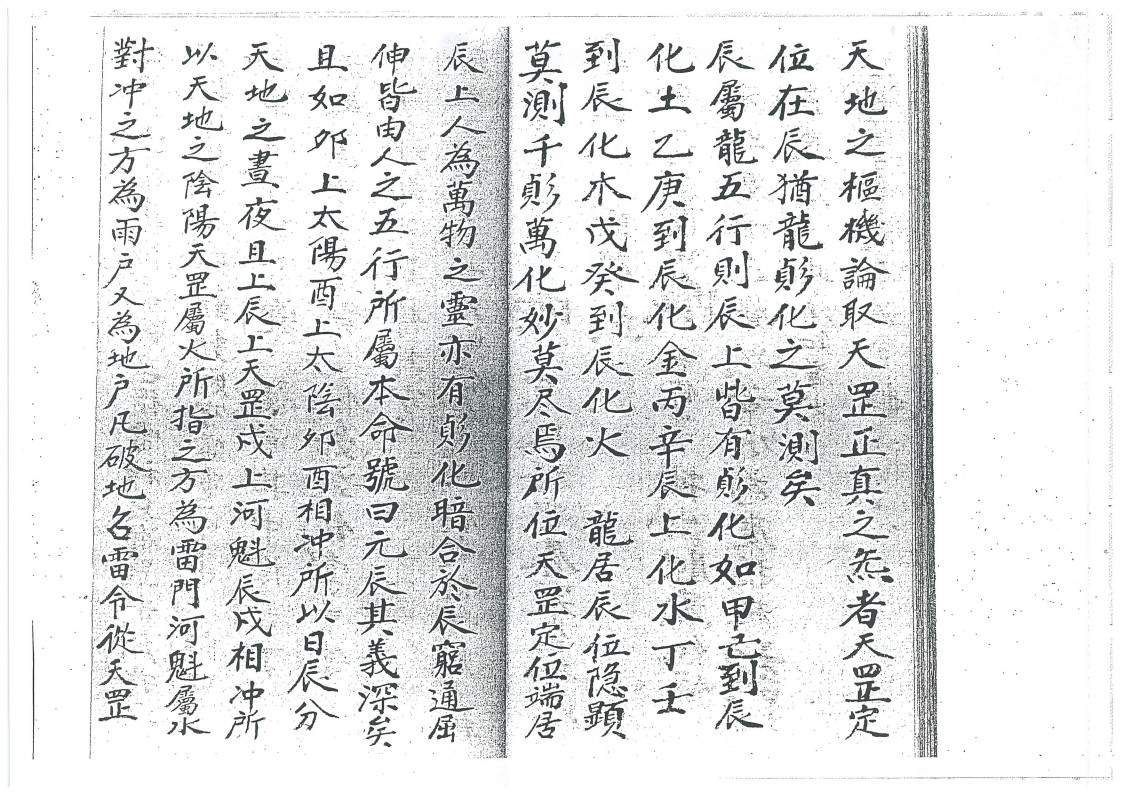 天地之樞機論取天罡正真之炁者天罡定
位在辰猶龍㣐化之莫測矣
辰屬龍五行則辰上皆有㣐化如甲己到辰
化土乙庚到辰化金丙辛辰上化水丁壬
到辰化木戊癸到辰化火 龍居辰位隐顯
莫測千㣐萬化妙莫尽焉所位天罡定位端居
辰上人為萬物之靈亦有㣐化暗合於辰窮通屈
伸皆由人之五行所屬本命號曰元辰其義深矣
且如卯上太陽酉上太陰卯酉相冲所以日辰分
天地之晝夜且上辰上天罡戍上河魁辰戍相冲所
以天地之陰陽天罡屬火所指之方為雷門河魁屬水
對冲之方為雨户又為地户凡破地召雷令從天罡